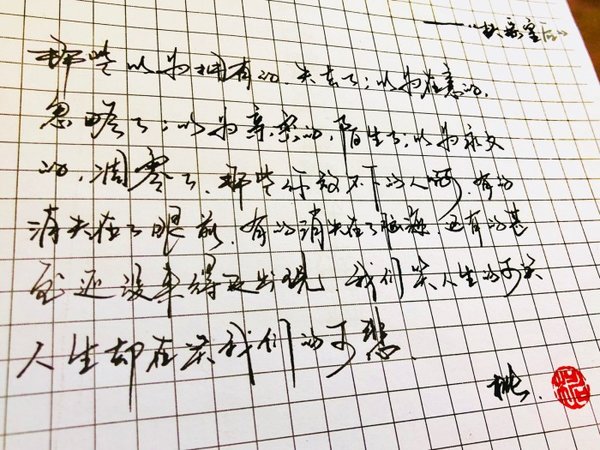 那些以为拥有的,失去了;以为在意的,
忽略了;以为亲密的,陌生了,以为永久
的,凋零了,那些放不下的人啊,有的
消失在了眼前,有的消失在了脑海,还有的甚
至还没来得及出现,我们笑人生的可笑
人生却在笑我们的可悲.